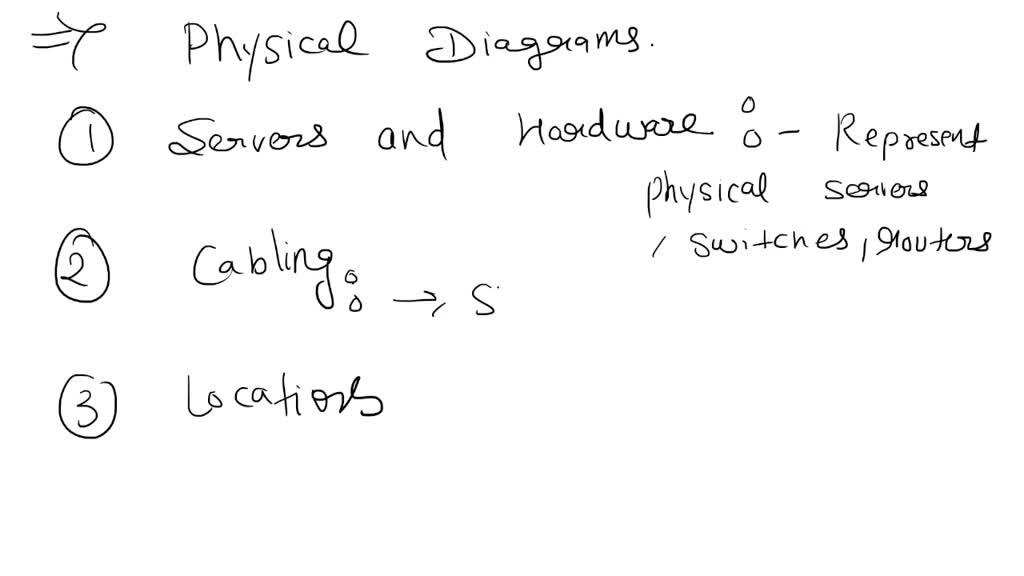 ⇒ Physical Diagrams.
① Servers and Hardware : - Represent
physical servers
, switches, routers
② Cabling : → S
③ Locations